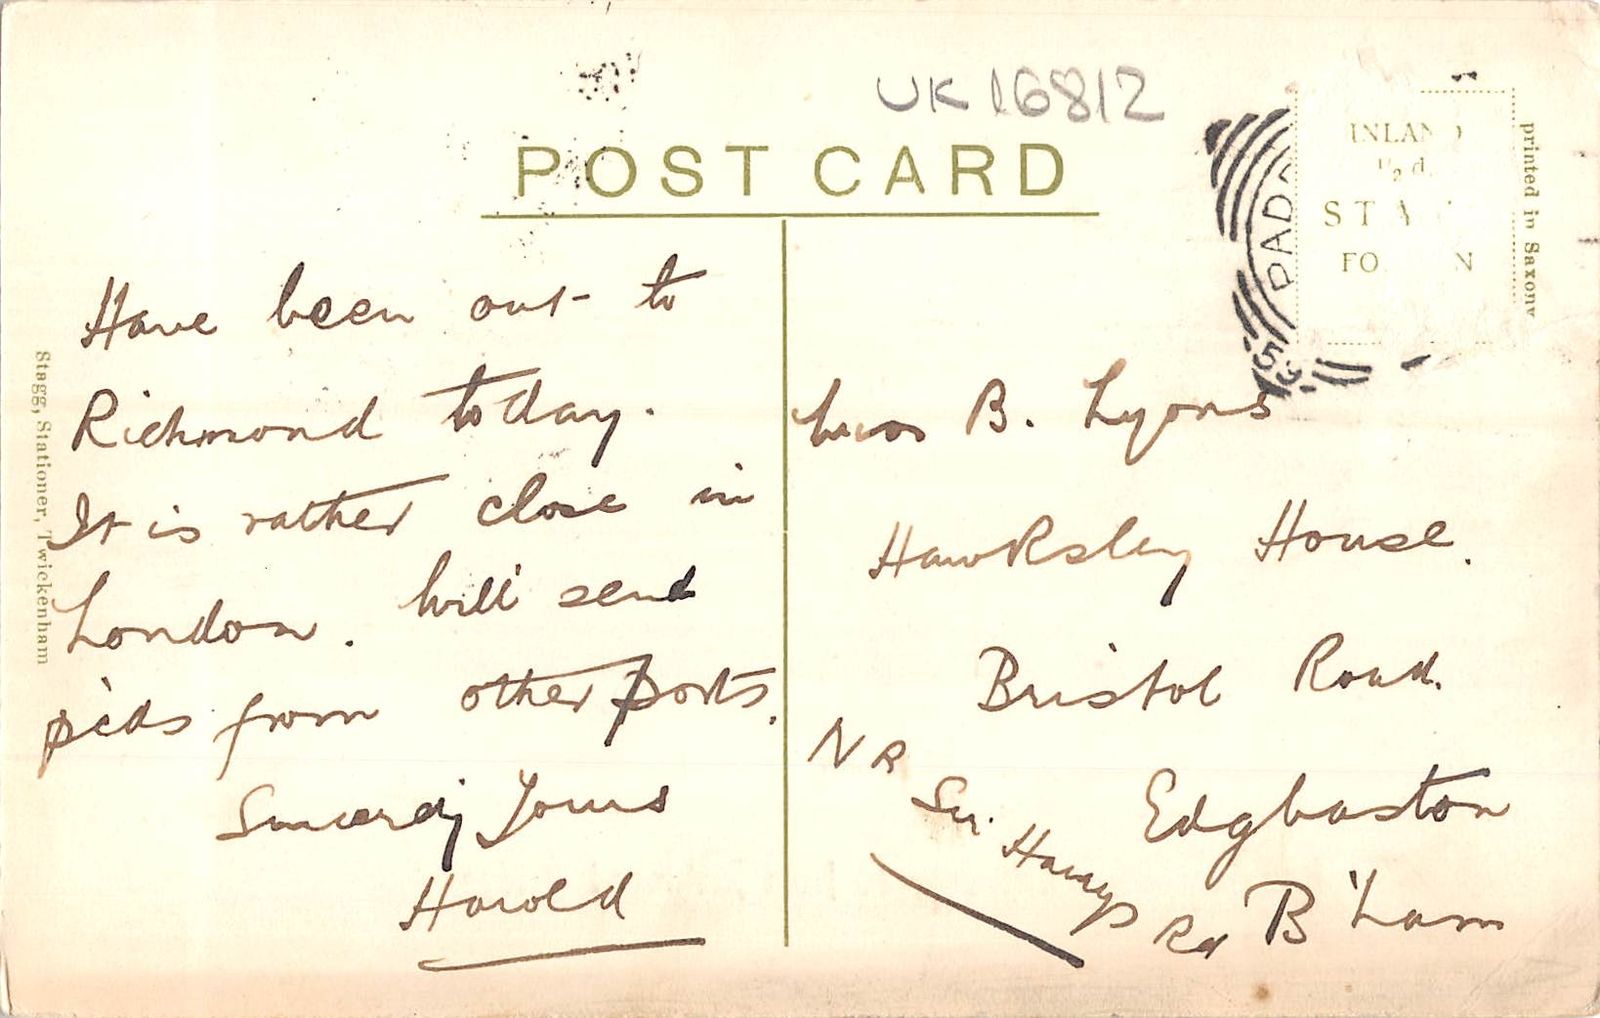 UK 16812
POST CARD
INLAN
½d.
STA
FO N
printed in Saxony
PADD
53
Have been out to
Richmond today.
It is rather close in
London. Will send
picds from other ports.
Sincerely Yours
Harold
Stagg, Stationer, Twickenham
Miss B. Lyons
Hawksley House.
Bristol Road.
Edgbaston
B'ham
NR
Sir Harrys Rd